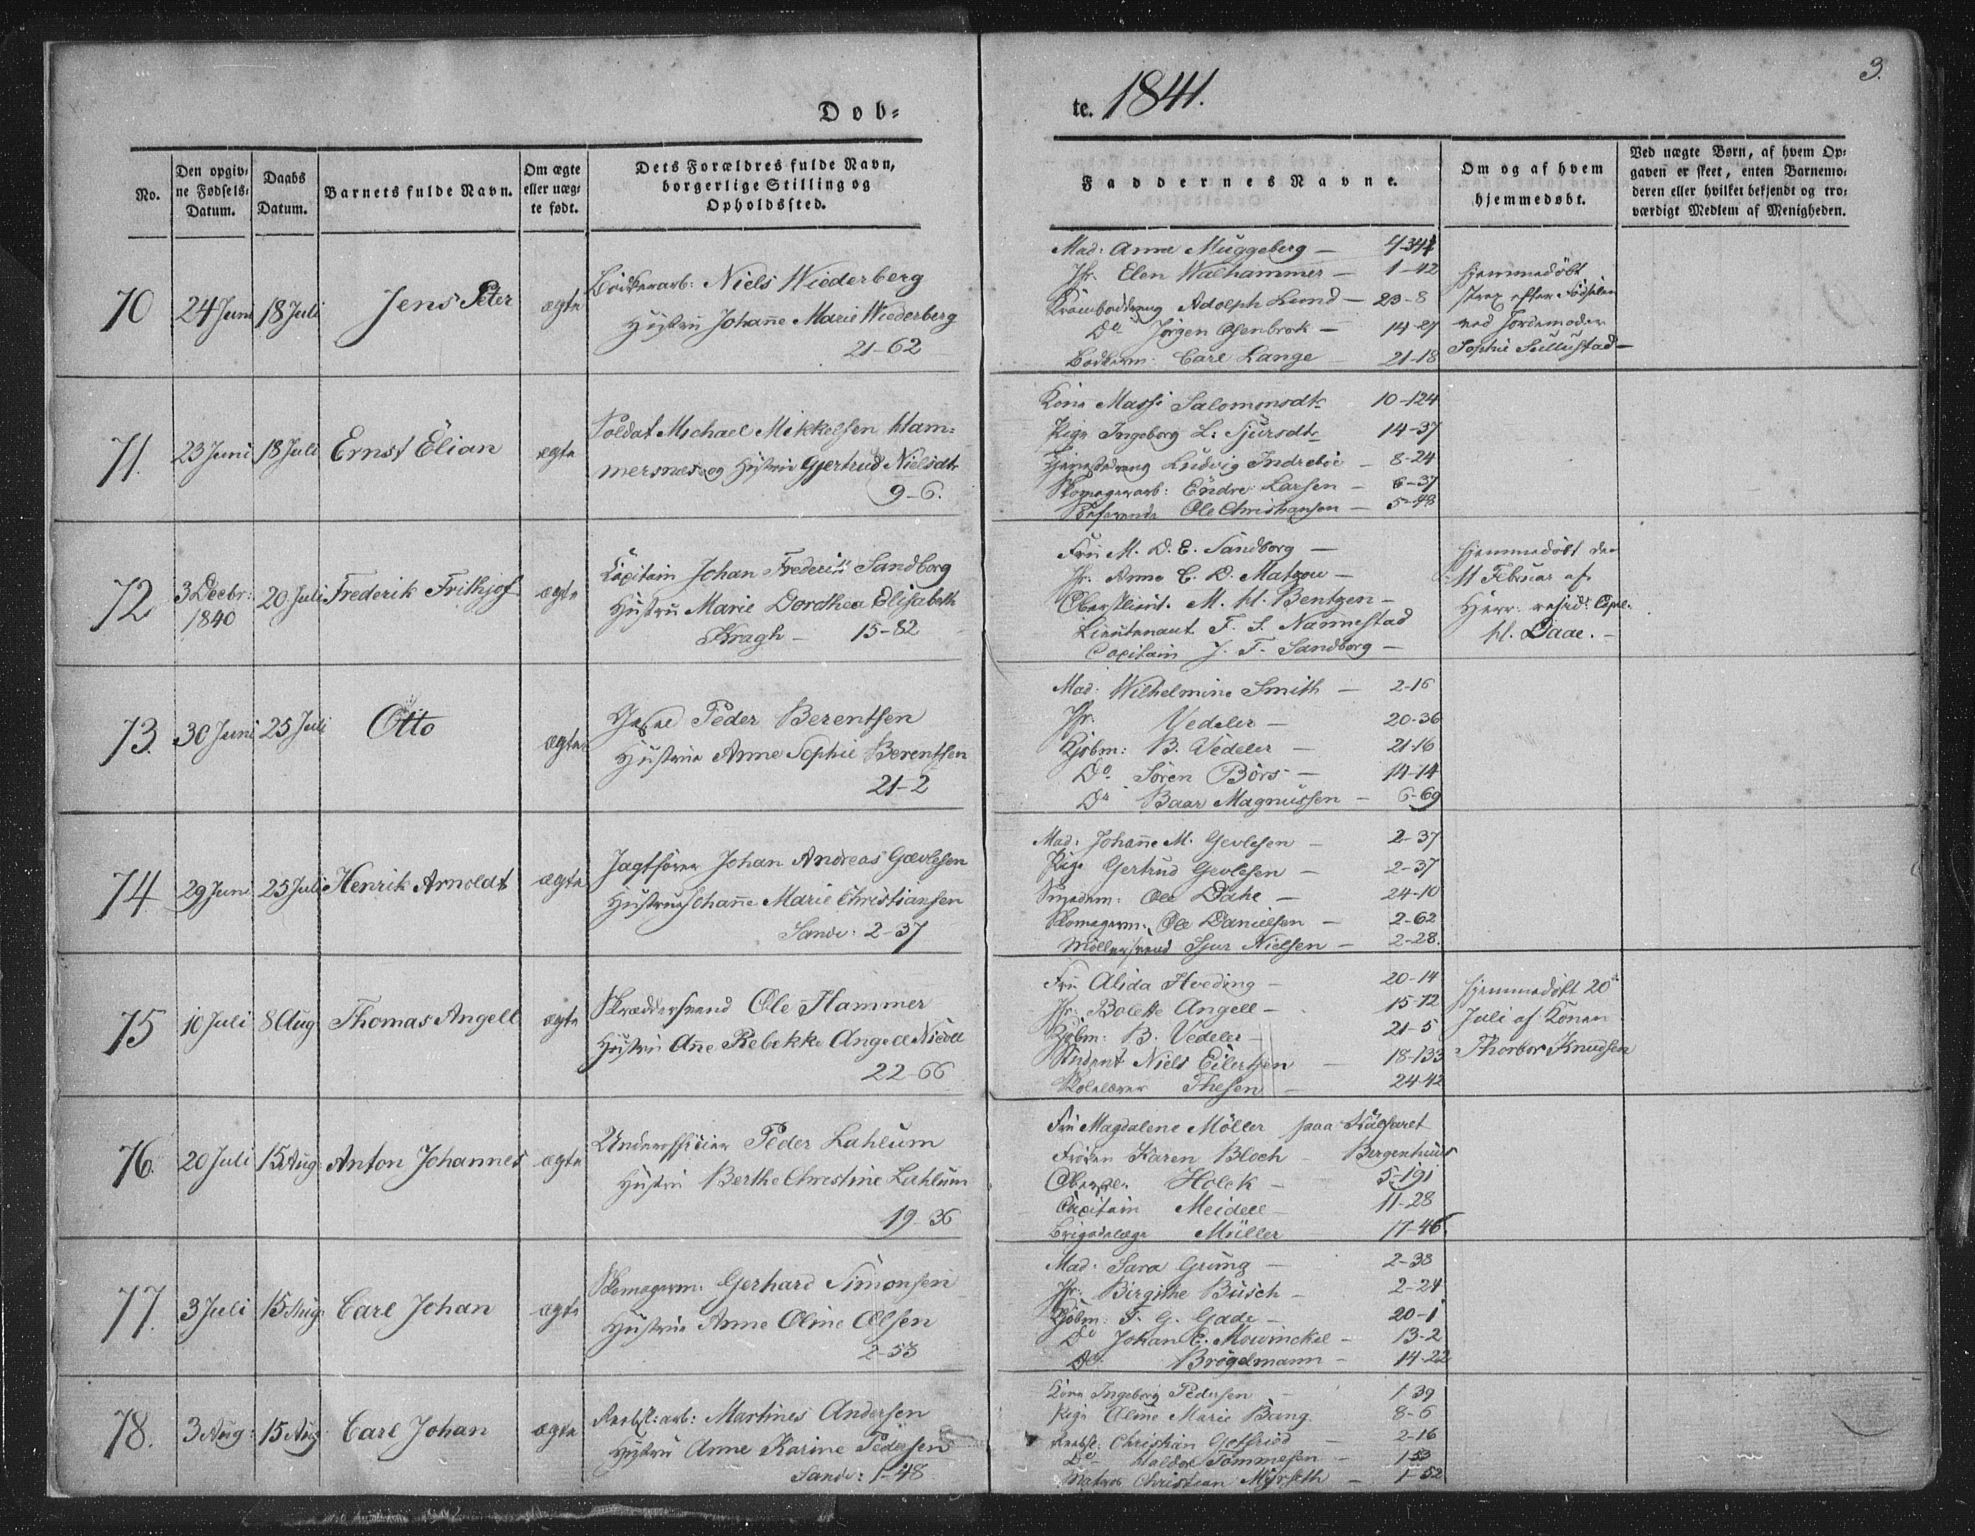 Dob=
te. 1841.
3.
No.
Den opgiv=
ne Fødsels=
Datum.
Daabs
Datum.
Barnets fulde Navn.
Om ægte
eller uæg=
te født.
Dets Forældres fulde Navn,
borgerlige Stilling og
Opholdssted.
Faddernes Navne.
Om og af hvem
hjemmedøbt.
Ved uægte Børn, af hvem Op=
gaven er skeet, enten Barnemo=
deren eller hvilket bekjendt og tro=
værdigt Medlem af Menigheden.
70
24 Juni
18 Juli
Jens Peter
ægte
Bödkerarb: Niels Wiederberg
Hustru Johanne Marie Wiederberg
21-62
Mad: Anne Muggeberg — 4-341
Jfr. Elen Walhammer — 1-42
Kramboddreng Adolph Lund — 23-8
Do Jörgen Osenbrok — 14-27
Bödkerm: Carl Lange 21-18
hjemmedöbt
strax efter Födselen
ved Jordemoder
Sophie Sellustad —
71.
23 Juni
18 Juli
Ernst Elian
ægte
Soldat Michael Mikkelsen Ham=
mersnes og Hustru Gjertrud Nielsdtr
9-6.
Kone Massi Salomonsdtr 10-124
Pige Ingeborg L: Sjursdtr 14-37
Tjenestedreng Ludvig Indreböe — 8-24
Skomagerarb: Endre Larsen — 6-37
Ole Christiansen — 5-48
72
3 Decbr:
1840
20 Juli
Frederik Frithjof
ægte
Capitain Johan Frederik Sandborg
Hustru Marie Dorothea Elisabeth
Kragh — 15-82
Fru M. D. E. Sandborg —
Jfr. Anne C. D. Matzou —
Oberstlieut. M. H. Bentzen —
Lieutenant F. S. Nannestad
Capitain J. F. Sandborg —
hjemmedöbt den
11 Februar af
Herr: resid: Capel.
H. Daae. —
73.
30 Juni
25 Juli
Otto
ægte
Peder Berentsen
Hustrue Anne Sophie Berentsen
21-2
Mad: Wilhelmine Smith — 2-16
Jfr. Vedeler — 20-36
Kjöbm: B. Vedeler — 21-16
Do Sören Börs — 14-14
Do Baar Magnussen — 6-69
74.
29 Juni
25 Juli
Henrik Arnoldt
ægte
Jagtförer Johan Andreas Gævlesen
Hustrue Johanne Marie Christiansen
Sandv: 2-37
Mad: Johanne M. Gevlesen — 2-37
Pige Gertrud Gevlesen — 2-37
Smedem: Ole Dahl — 24-10
Skomagerm: Ole Danielsen — 2-62
Möllersvend Sjur Nielsen — 2-28.
75
10 Juli
8 Aug
Thomas Angell
ægte
Skræddersvend Ole Hammer
Hustru Anne Rebekke Angell
22-66
Fru Alida Hveding — 20-14
Jfr: Bolette Angell — 15-72
Kjöbm: B. Vedeler — 21-5
Student Niels Eilertsen — 18-133
Skolelærer Thesen — 24-42
hjemmedöbt 20
Juli af Konen
Thorbor Knudsen
76.
20 Juli
15 Aug
Anton Johannes
ægte
Underofficier Peder Lahlum
Hustru Berthe Christine Lahlum
19-36
Fru Magdalene Möller paa Kalfaret
Fröken Karen Bloch — Bergenhuus
Holck — 5-191
Capitain Meidell — 11-28
Brigadelæge Müller 17-46.
77.
3 Juli
15 Aug
Carl Johan
ægte
Skomagerm: Gerhard Simonsen
Hustrue Anne Oline Olsen
2-53
Mad: Sara Grung — 2-38
Jfr: Birgithe Busch — 2-24
Kjöbm: F. G. Gade — 20-1
Do Johan E. Mowinckel — 13-2
Do Brögelmann — 14-22
78.
3 Aug:
15 Aug
Carl Johan
ægte
Martines Andersen
Hustru Anne Karine Pedersen
Sandv: 1-48
Kone Ingeborg Pedersen — 1-39
Pige Oline Marie Bang. 8-6
Christian Gotfried — 2-16
Do Haldor Tommesen — 1-53
Matros Christian Myrseth — 1-52